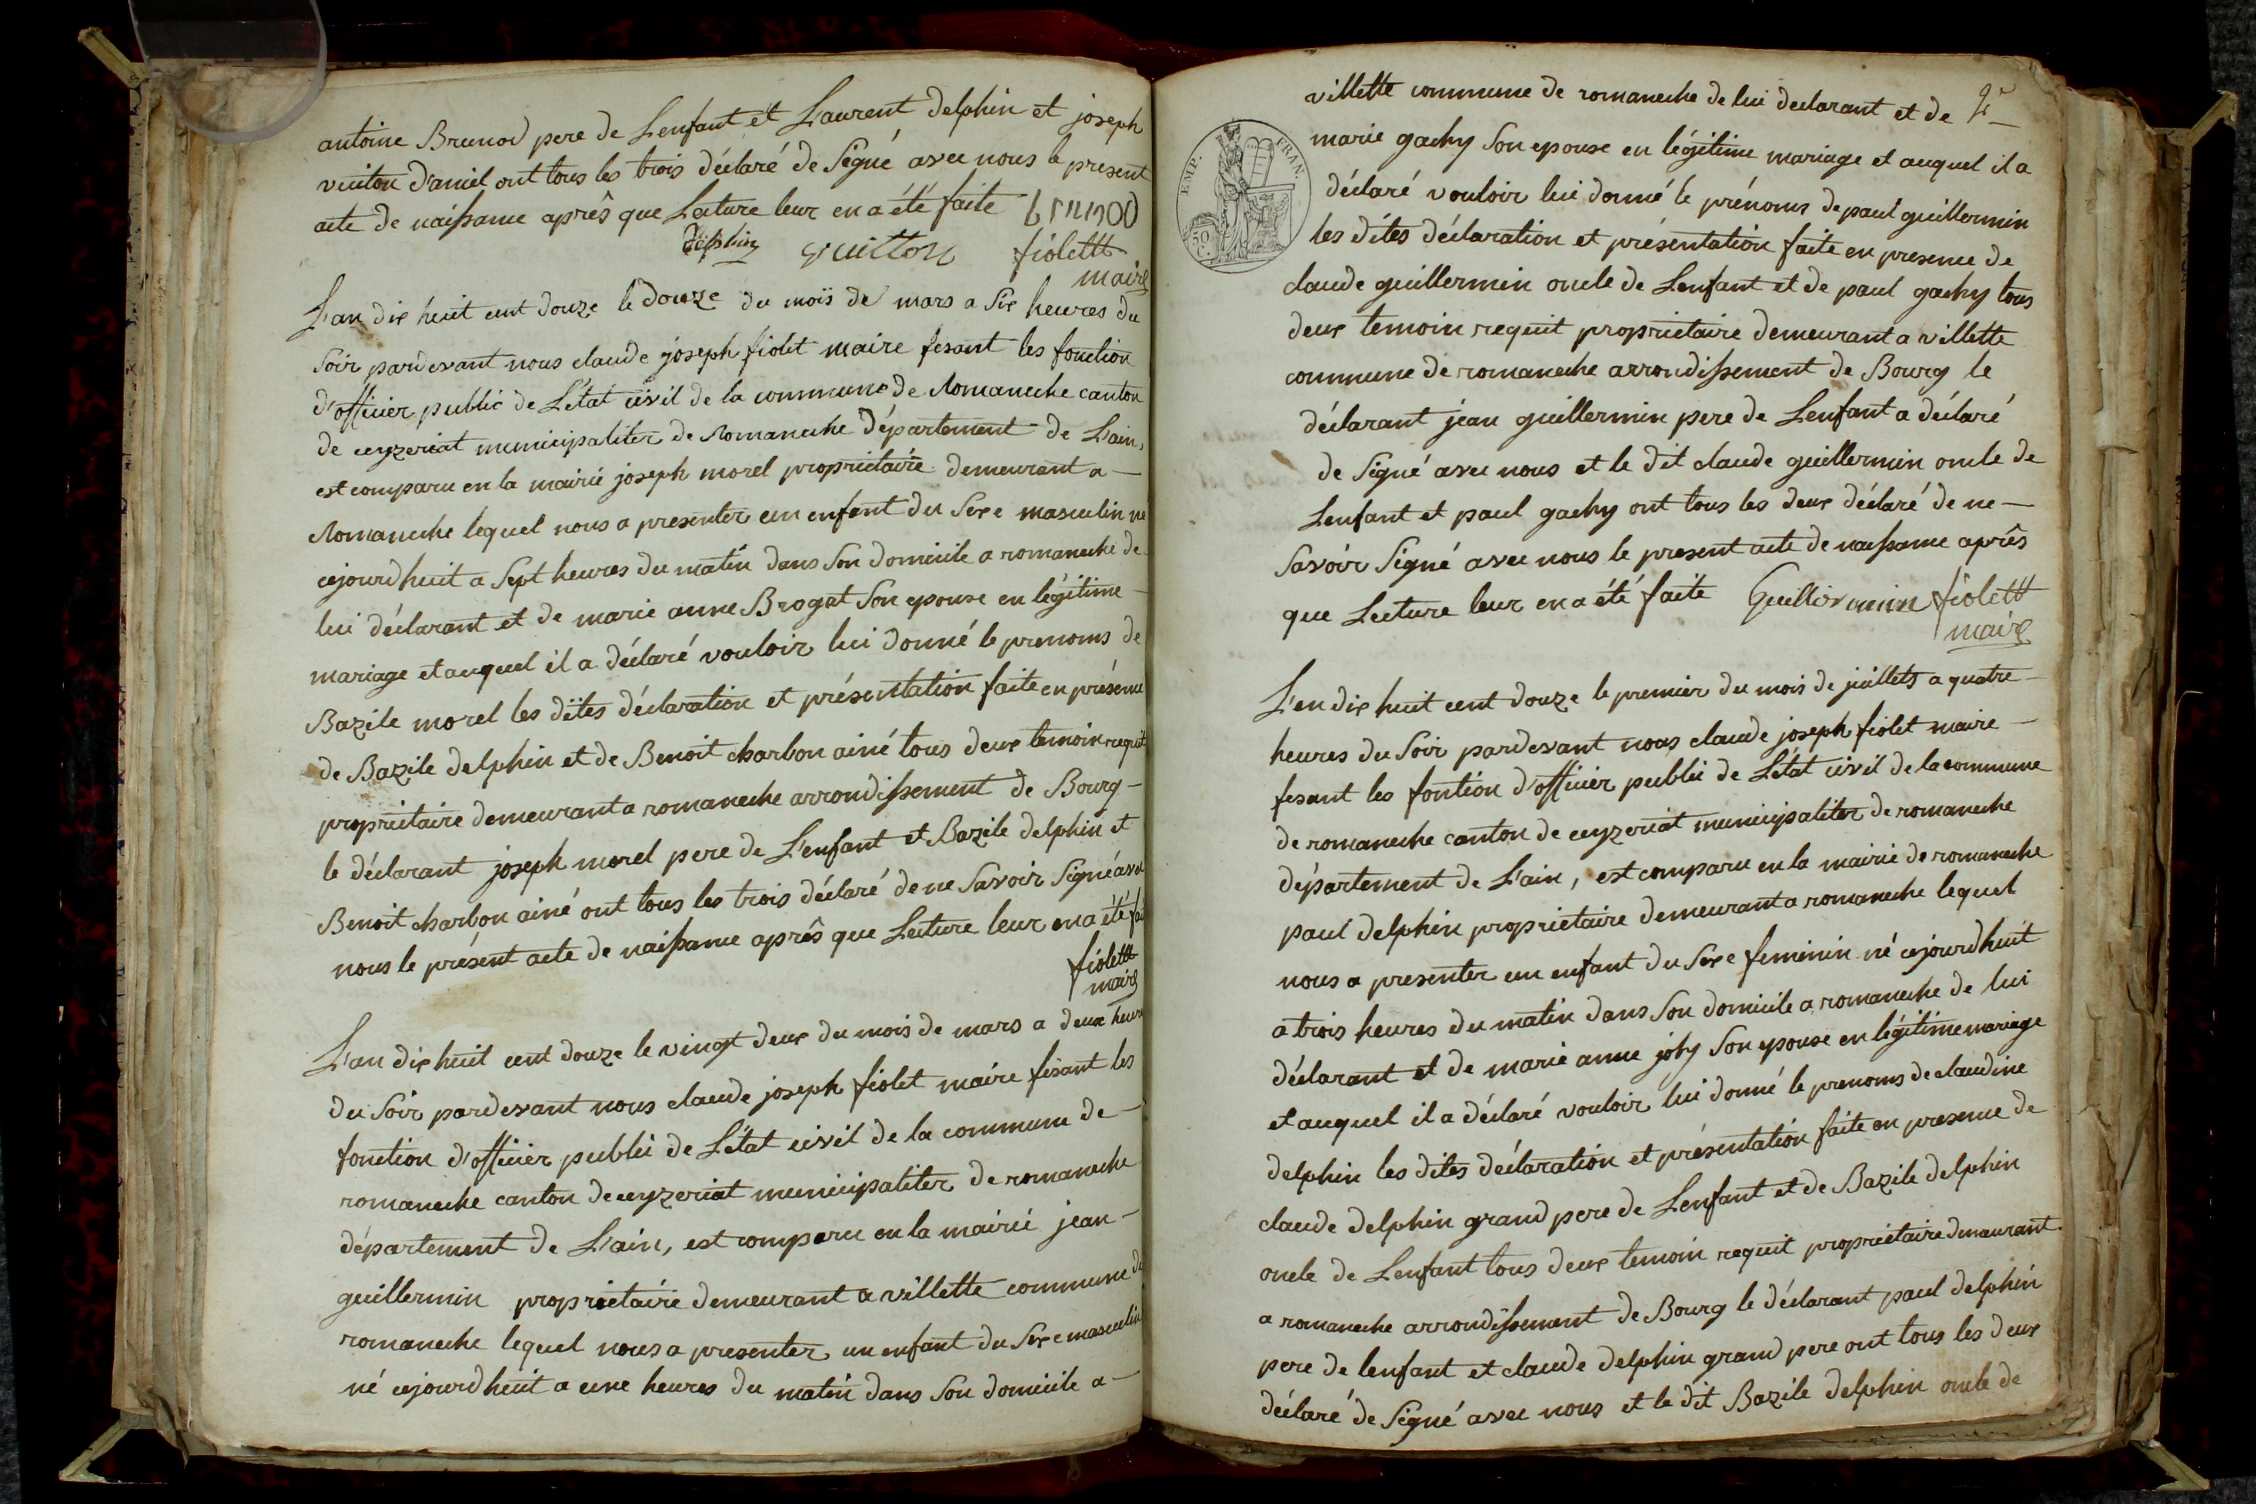 antoine Brunod pere de Lenfant et Laurent delphin et joseph
vuiton daniel ont tous les trois déclaré de Signé avec nous le present
acte de naissance aprês que Lecture leur en a été faite brunod
delphin vuitton fiolettt
maire
L'an dix huit cent douze le douze du moïs de mars a Six heures du
Soir pardevant nous claude joseph fiolet maire fesant les fonction
d'officier public de L'état civil de la commune de Romaneche canton
de ceyzeriat municipaliter de Romaneche Département de L'ain,
est comparu en la mairie joseph morel proprietaire demeurant a —
Romaneche lequel nous a presenter un enfant du Sexe masculin né
cejourdhuit a Sept heures du matin dans Son domicile a romaneche de
lui déclarant et de marie anne Brogat Son epouse en légitime —
mariage et auquel il a déclaré vouloir lui donné le prenoms de
Bazile morel les dites déclaration et présentation faite en présence
de Bazile delphin et de Benoit charbon ainé tous deux temoin requit
proprietaire demeurant a romaneche arrondissement de Bourg —
le déclarant joseph morel pere de L'enfant et Bazile delphin et
Benoit charbon ainé ont tous les trois déclaré de ne Savoir Signé avec
nous le présent acte de naissance aprês que Lecture leur en a été fai
fiolettt
maire
L'an dix huit cent douze le vingt deux du mois de mars a deux heure
du Soir pardevant nous claude joseph fiolet maire fesant les
fonction d'officier public de L'état civil de la commune de —
romaneche canton de ceyzeriat municipaliter de romaneche
département de L'ain, est comparu en la mairie jean —
guillermin proprietaire demeurant a villette commune de
romaneche lequel nous a presenter un enfant du Sexe masculin
né cejourdhuit a une heures du matin dans Son domicile a —
2e
villette commune de romaneche de lui declarant et de
marie gachy Son epouse en légitime mariage et auquel il a
déclaré vouloir lui donné le prénoms de paul guillermin
les dites déclaration et présentation faite en presence de
claude guillermin oncle de Lenfant et de paul gachy tous
deux temoin requit proprietaire demeurant a villette
commune de romaneche arrondissement de Bourg le
déclarant jean guillermin pere de Lenfant a déclaré
de Signé avec nous et le dit claude guillermin oncle de
Lenfant et paul gachy ont tous les deux déclaré de ne —
Savoir Signé avec nous le present acte de naissance aprês
que Lecture leur en a été faite Guillermin fiolettt
maire
EMP. FRAN.
50 C.
L'en dix huit cent douze le premier du mois de juillets a quatre —
heures du Soir pardevant nous claude joseph fiolet maire —
fesant les fontion d'officier public de L'état civil de la commune
de romaneche canton de ceyzeriat municipaliter de romaneche
département de L'ain, est comparu en la mairie de romaneche
paul delphin proprietaire demeurant a romaneche lequel
nous a presenter un enfant du Sexe feminin né cejourdhuit
a trois heures du matin dans Son domicile a romaneche de lui
déclarant et de marie anne joly Son epouse en légitime mariage
et auquel il a déclaré vouloir lui donné le prenoms de claudine
delphin les dites déclaration et présentation faite en presence de
claude delphin grand pere de Lenfant et de Bazile delphin
oncle de Lenfant tous deux temoin requit proprietaire demeurant
a romaneche arrondissement de Bourg le déclarant paul delphin
pere de lenfant et claude delphin grand pere ont tous les deux
déclaré de Signé avec nous et le dit Bazile delphin oncle de